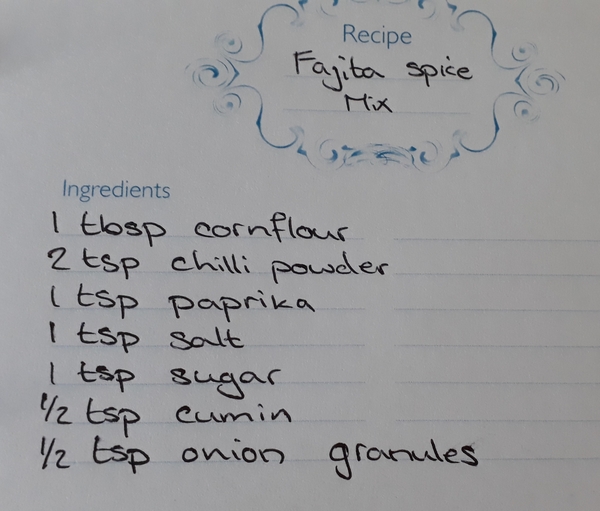 Recipe
Fajita spice
Mix
Ingredients
1 tbsp cornflour
2 tsp chilli powder
1 tsp paprika
1 tsp salt
1 tsp sugar
1/2 tsp cumin
1/2 tsp onion granules